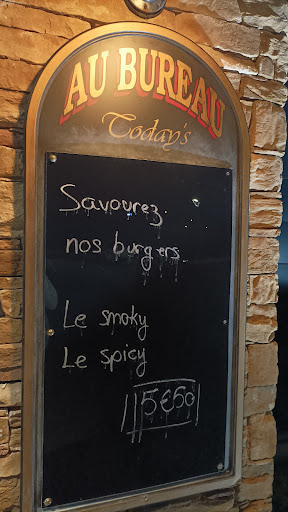 AU BUREAU
Today's
Savourez
nos burgers
Le smoky
Le spicy
15€50